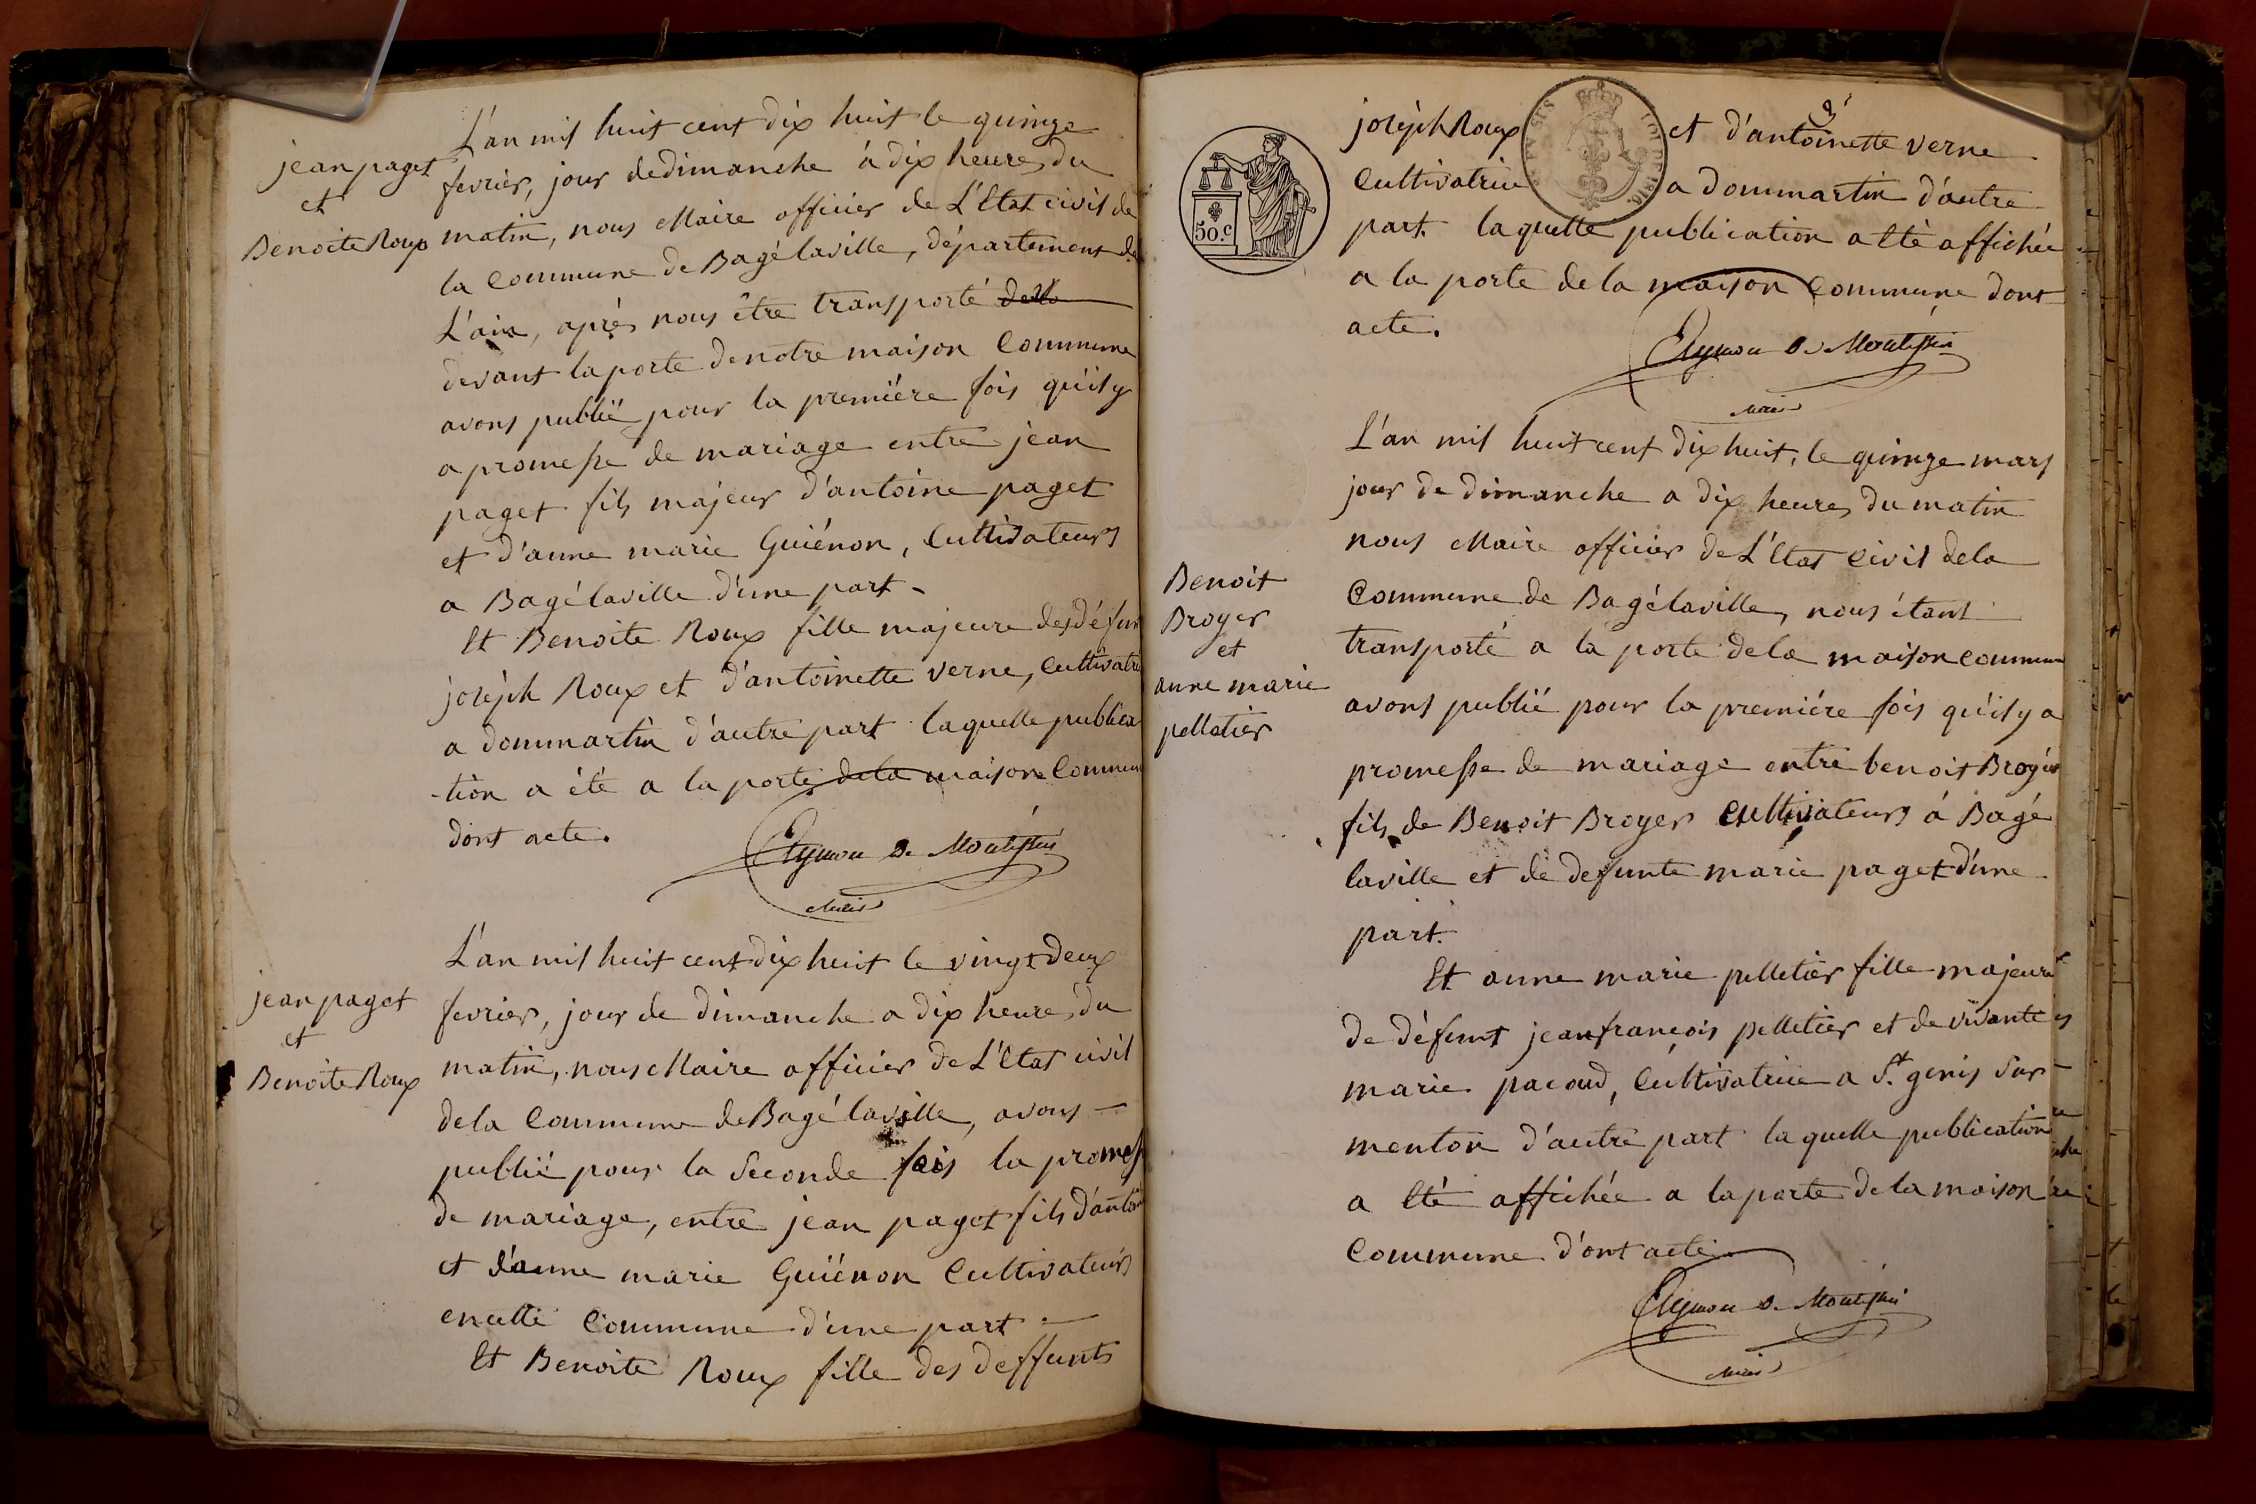 jean paget
et
Benoite Roux
L'an mil huit cent dix huit le quinze
fevrier, jour de dimanche à dix heures du
matin, nous Maire officier de L'Etat civil de
la Commune de Bagé laville, département de
L'ain, après nous être transporté
devant la porte de notre maison Commune
avons publié pour la première fois qu'il y
a promesse de mariage entre jean
paget fils majeur d'antoine paget
et d'anne marie Guiénon, Cultivateurs
a Bagé laville d'une part
Et Benoite Roux fille majeure des défun
joséph Roux et d'antoinette verne, Cultivatri
a dommartin d'autre part laquelle publica
-tion a été a la porte de la maison Commun
dont acte.
Maire
jean paget
et
Benoite Roux
L'an mil huit cent dix huit le vingt deux
fevrier, jour de dimanche a dix heures du
matin, nous Maire officier de L'Etat civil
de la Commune de Bagé laville, avons
publié pour la Seconde fois la promess
de mariage, entre jean paget fils d'antoin
et d'anne marie Guiénon Cultivateurs
en cette Commune d'une part
Et Benoite Roux fille des deffunts
50.c
joséph Roux et d'antoinette verne
Cultivatrice a dommartin d'autre
part. laquelle publication a été affichée
a la porte de la maison Commune dont
acte.
Maire
Benoit
Broyer
et
anne marie
pelletier
L'an mil huit cent dix huit, le quinze mars
jour de dimanche a dix heures du matin
nous Maire officier de L'Etat Civil de la
Commune de Bagé laville, nous étant
transporté a la porte de la maison commun
avons publié pour la première fois qu'il y a
promesse de mariage entre benoit Broyer
fils de Benoit Broyer Cultivateurs à Bagé
laville et de defunte marie paget d'une
part.
Et anne marie pelletier fille majeure
de défunt jean françois pelletier et de vivante
marie pacoud, Cultivatrice a St. genis Sur
menton d'autre part laquelle publication
a été affichée a la porte de la maison
Commune d'ont acte
Maire